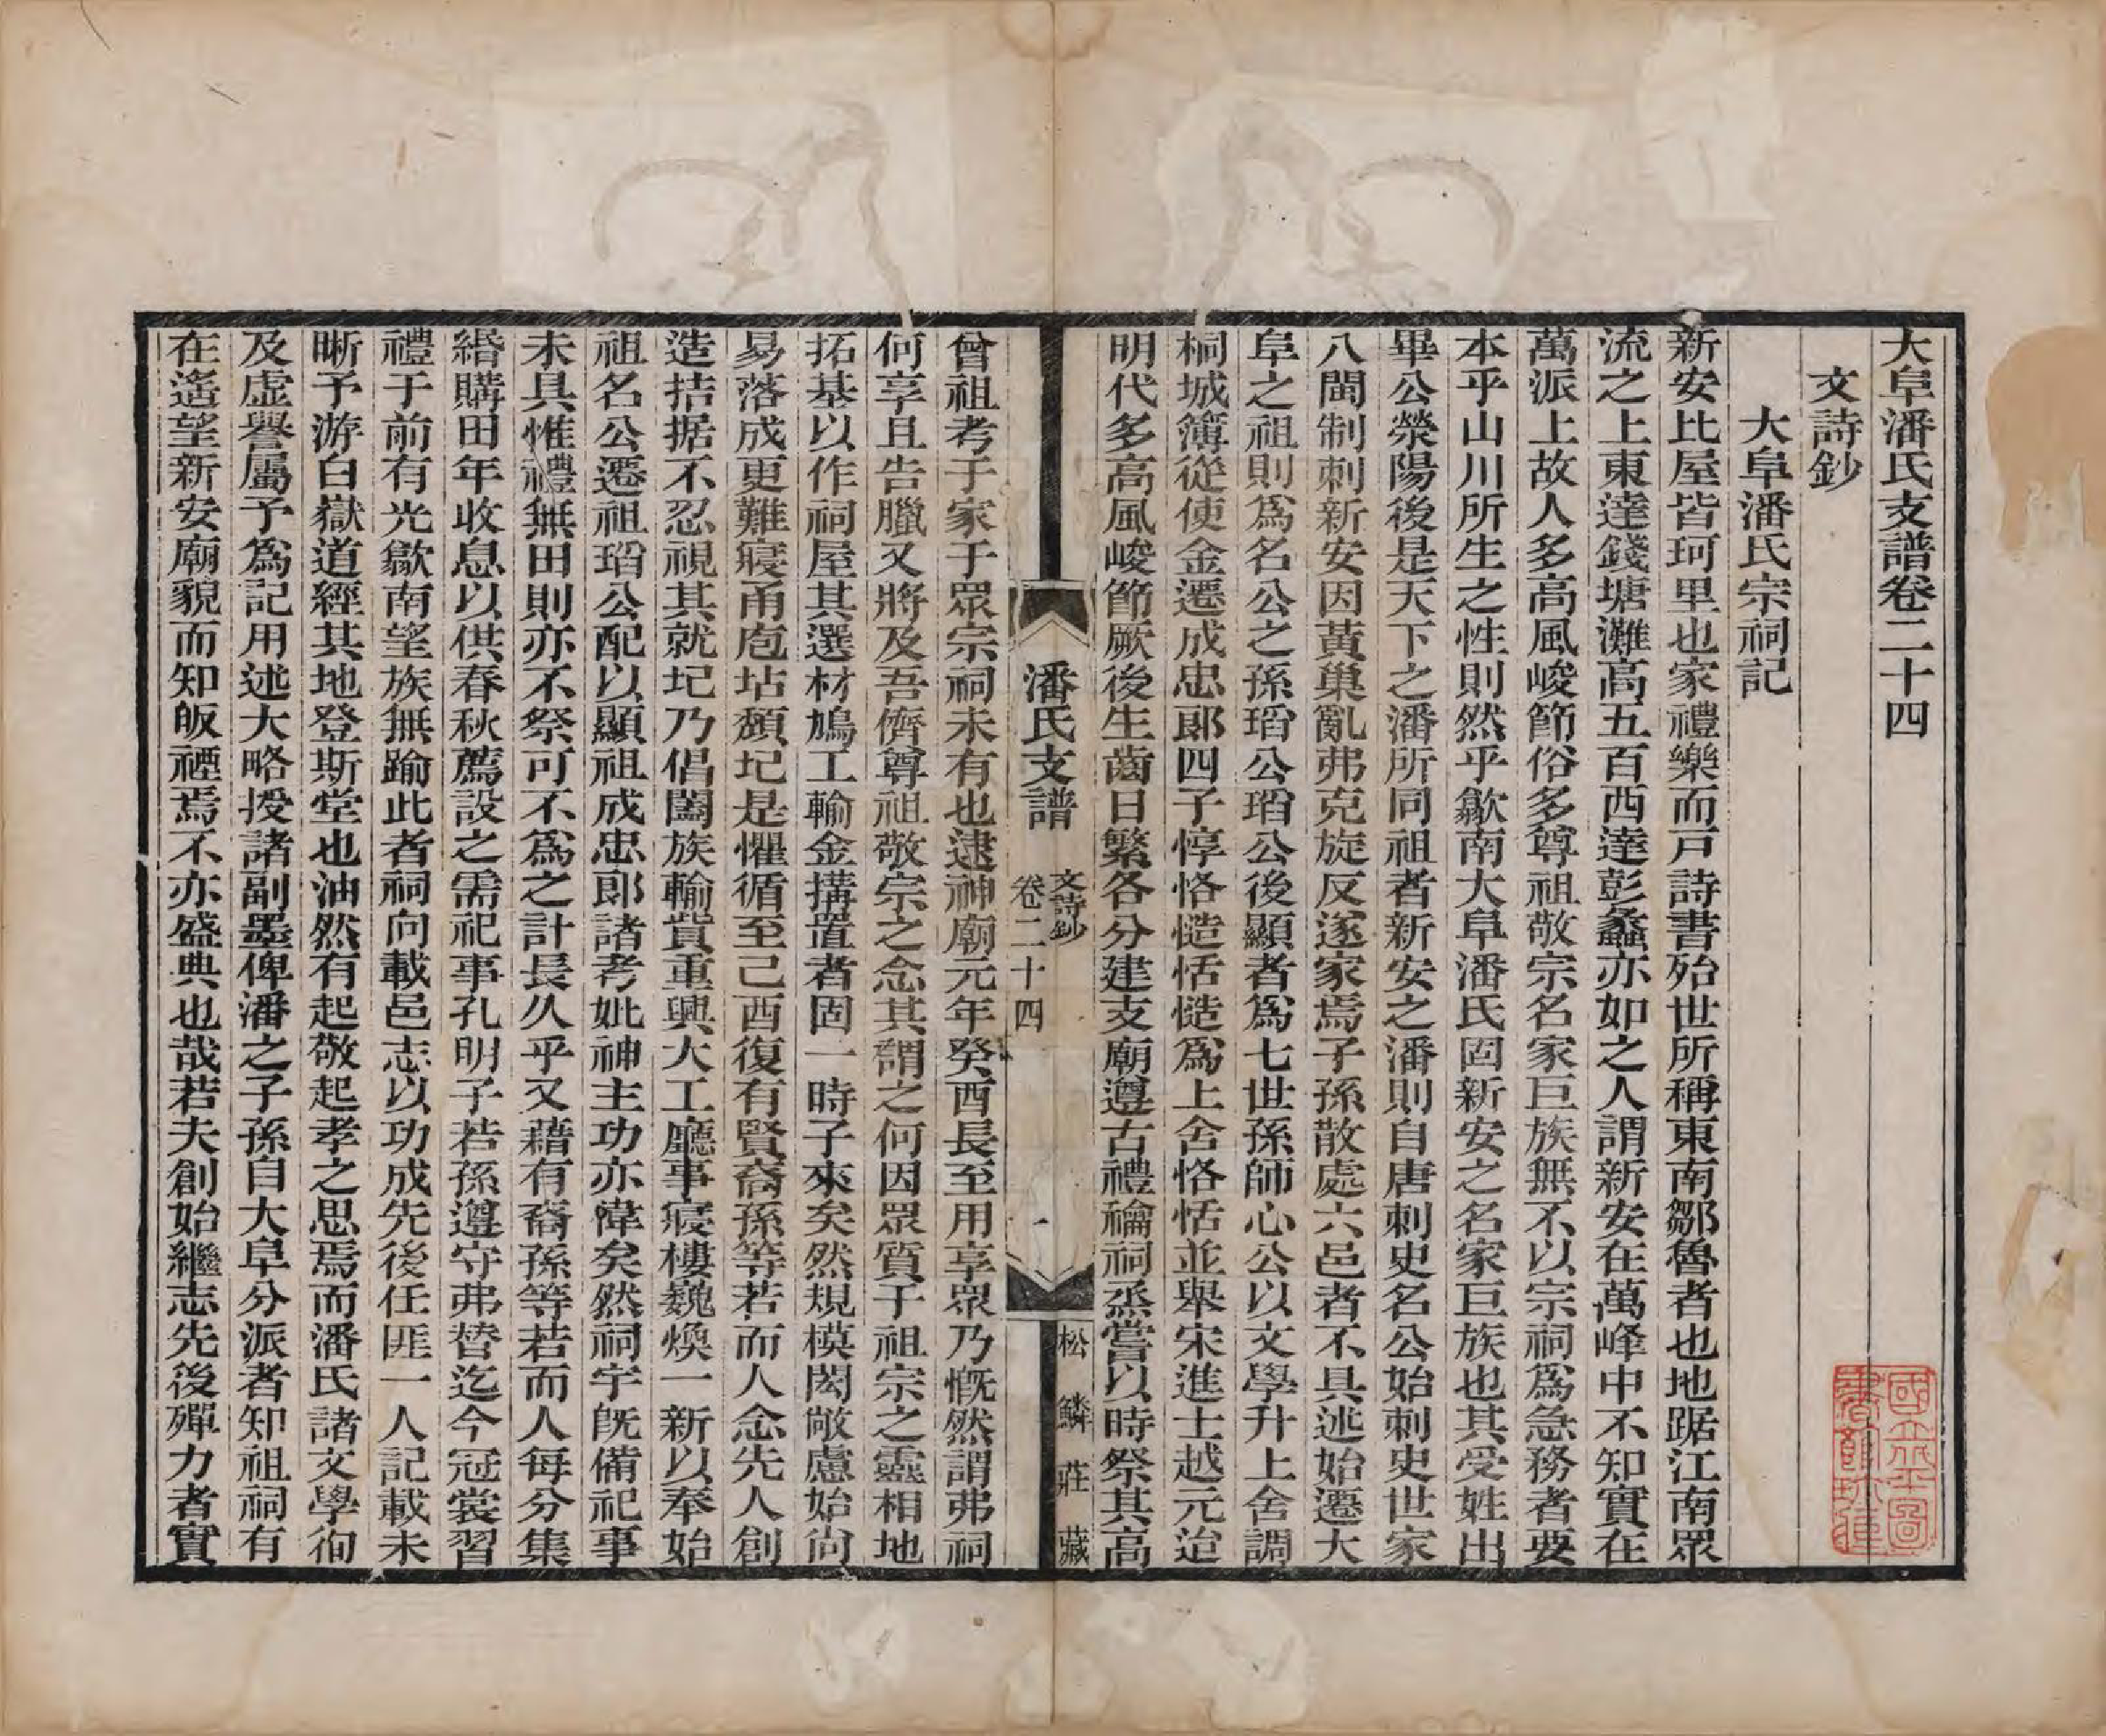 大阜潘氏支譜卷二十四
文詩鈔
大阜潘氏宗祠記
新安比屋皆珂里也家禮樂而戸詩書殆世所稱東南鄒魯者也地踞江南眾
流之上東達錢塘灘高五百西達彭蠡亦如之人謂新安在萬峰中不知實在
萬派上故人多高風峻節俗多尊祖敬宗名家巨族無不以宗祠爲急務者要
本乎山川所生之性則然乎歙南大阜潘氏固新安之名家巨族也其受姓出
畢公滎陽後是天下之潘所同祖者新安之潘則自唐刺史名公始刺史世家
八閩制刺新安因黃巢亂弗克旋反遂家焉子孫散處六邑者不具述始遷大
阜之祖則爲名公之孫瑫公瑫公後顯者爲七世孫師心公以文學升上舍調
桐城簿從使金遷成忠郎四子惇恪慥恬慥爲上舍恪恬並舉宋進士越元迨
明代多高風峻節厥後生齒日繁各分建支廟遵古禮禴祠烝嘗以時祭其高
潘氏支譜
文詩鈔
卷二十四
一
松鱗莊藏
曾祖考于家于眾宗祠未有也逮神廟元年癸酉長至用享眾乃慨然謂弗祠
何享且告臘又將及吾儕尊祖敬宗之念其謂之何因眾質于祖宗之靈相地
拓基以作祠屋其選材鳩工輸金搆置者固一時子來矣然規模閎敞慮始尚
易落成更難寢甬庖坫頹圮是懼循至己酉復有賢裔孫等若而人念先人創
造拮据不忍視其就圮乃倡闔族輸貲重興大工廳事寢樓巍煥一新以奉始
祖名公遷祖瑫公配以顯祖成忠郎諸考妣神主功亦偉矣然祠宇既備祀事
未具惟禮無田則亦不祭可不爲之計長久乎又藉有裔孫等若而人每分集
緡購田年收息以供春秋薦設之需祀事孔明子若孫遵守弗替迄今冠裳習
禮于前有光歙南望族無踰此者祠向載邑志以功成先後任匪一人記載未
晰予游白嶽道經其地登斯堂也油然有起敬起孝之思焉而潘氏諸文學徇
及虛譽屬予爲記用述大略授諸副墨俾潘之子孫自大阜分派者知祖祠有
在遙望新安廟貌而知皈禋焉不亦盛典也哉若夫創始繼志先後殫力者實